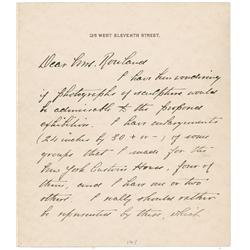 125 WEST ELEVENTH STREET.
Dear Mrs. Rowland
I have been wondering
if photographs of sculpture would
be admissable to the proposed
exhibition. I have enlargements
(24 inches by 30 + or - ) of some
groups that I made for the
New York Custom House, four of
them, and I have one or two
others. I really should rather
be represented by these, which